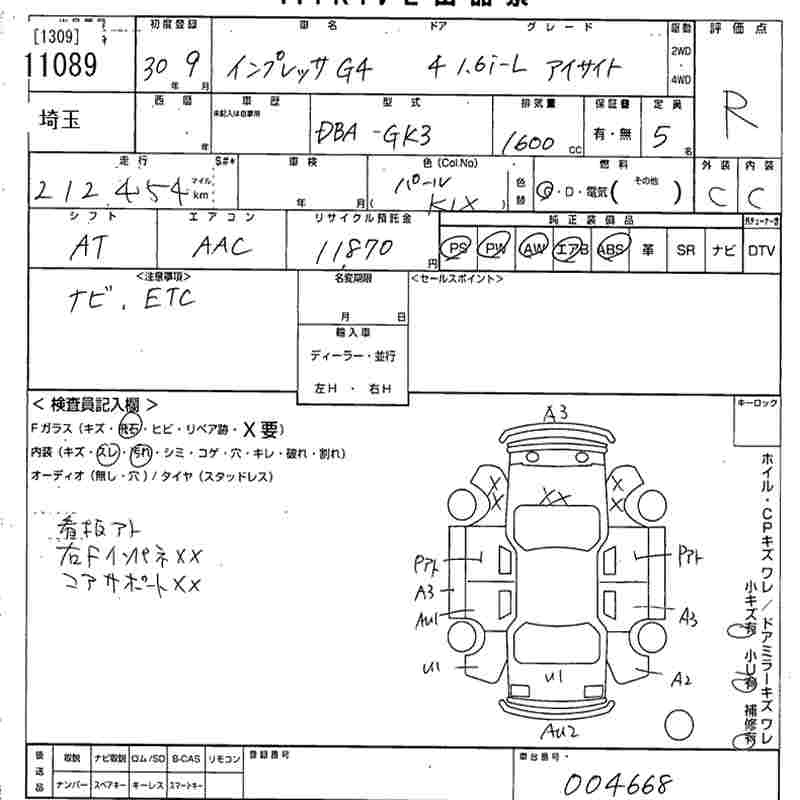 [1309]
11089
初度登録 車名 ドア グレード 駆動 評価点
30年 9月 インプレッサ G4 4 1.6i-L アイサイト 2WD・4WD R
埼玉
西暦 年 車歴 未記入は自家用 型式 DBA-GK3 排気量 1600cc 保証書 有・無 定員 5名
走行 212454 マイル km S#* 車検 年 月 色(Col.No) パール (K1X) 色替 燃料 G・D・電気( その他 ) 外装 C 内装 C
シフト エアコン リサイクル預託金 純正装備品
AT AAC 11,870円 PS PW AW エアB ABS 革 SR ナビ DTV
<注意事項> 名変期限 <セールスポイント>
ナビ、ETC
月 日
輸入車
ディーラー・並行
左H ・ 右H
＜検査員記入欄＞ キーロック
Fガラス(キズ・飛石・ヒビ・リペア跡・X要)
内装(キズ・スレ・汚れ・シミ・コゲ・穴・キレ・破れ・割れ)
オーディオ(無し・穴)/タイヤ(スタッドレス)
看板アト
右Fインパネ××
コアサポート××
A3
X X X X
X X
Pアト Pアト
A3
AU1 A3
U1 U1 A2
AU2
ホイル・CPキズワレ/ドアミラーキズワレ
小キズ有 小U有 補修有
後送品 取説 ナビ取説 ロム/SD B-CAS リモコン 登録番号 車台番号
ナンバー スペアキー キーレス スマートキー 004668